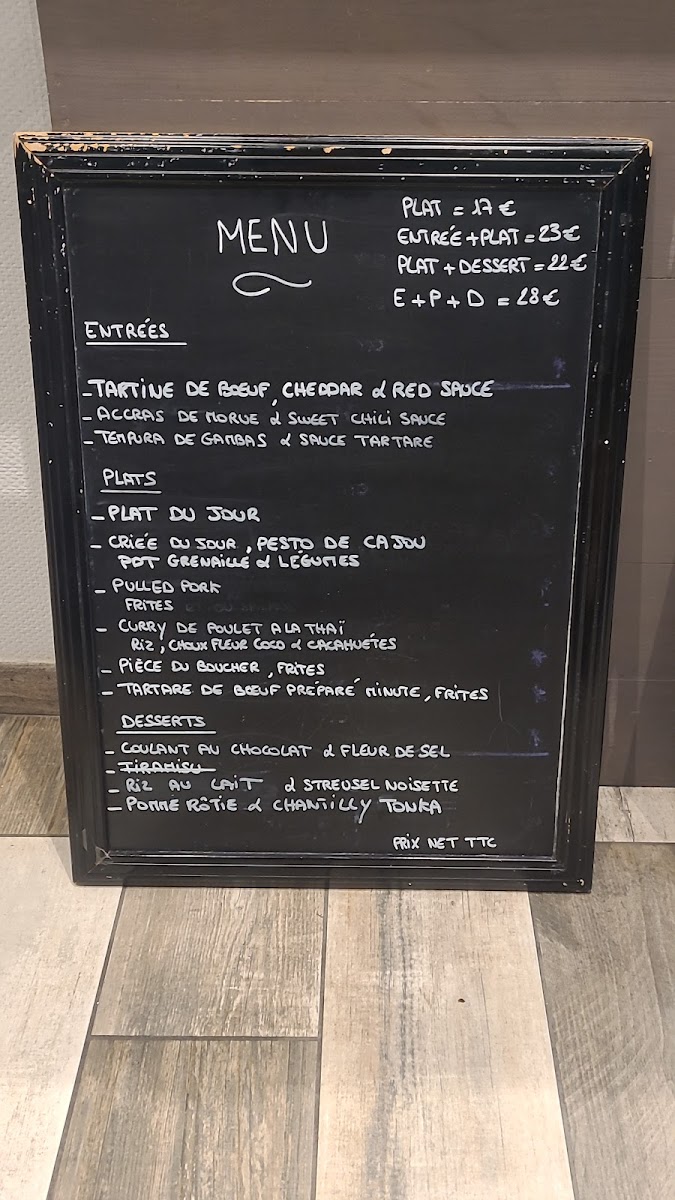 MENU
PLAT = 17 €
ENTRÉE + PLAT = 23 €
PLAT + DESSERT = 22 €
E + P + D = 28 €
ENTRÉES
- TARTINE DE BŒUF, CHEDDAR & RED SAUCE
- ACCRAS DE MORUE & SWEET CHILI SAUCE
- TEMPURA DE GAMBAS & SAUCE TARTARE
PLATS
- PLAT DU JOUR
- CRIÉE DU JOUR, PESTO DE CAJOU
POT GRENAILLE & LÉGUMES
- PULLED PORK
FRITES
- CURRY DE POULET A LA THAÏ
RIZ, CHOUX FLEUR COCO & CACAHUÉTES
- PIÈCE DU BOUCHER, FRITES
- TARTARE DE BŒUF PRÉPARÉ MINUTE, FRITES
DESSERTS
- COULANT AU CHOCOLAT & FLEUR DE SEL
- TIRAMISU
- RIZ AU LAIT & STREUSEL NOISETTE
- POMME RÔTIE & CHANTILLY TONKA
PRIX NET TTC